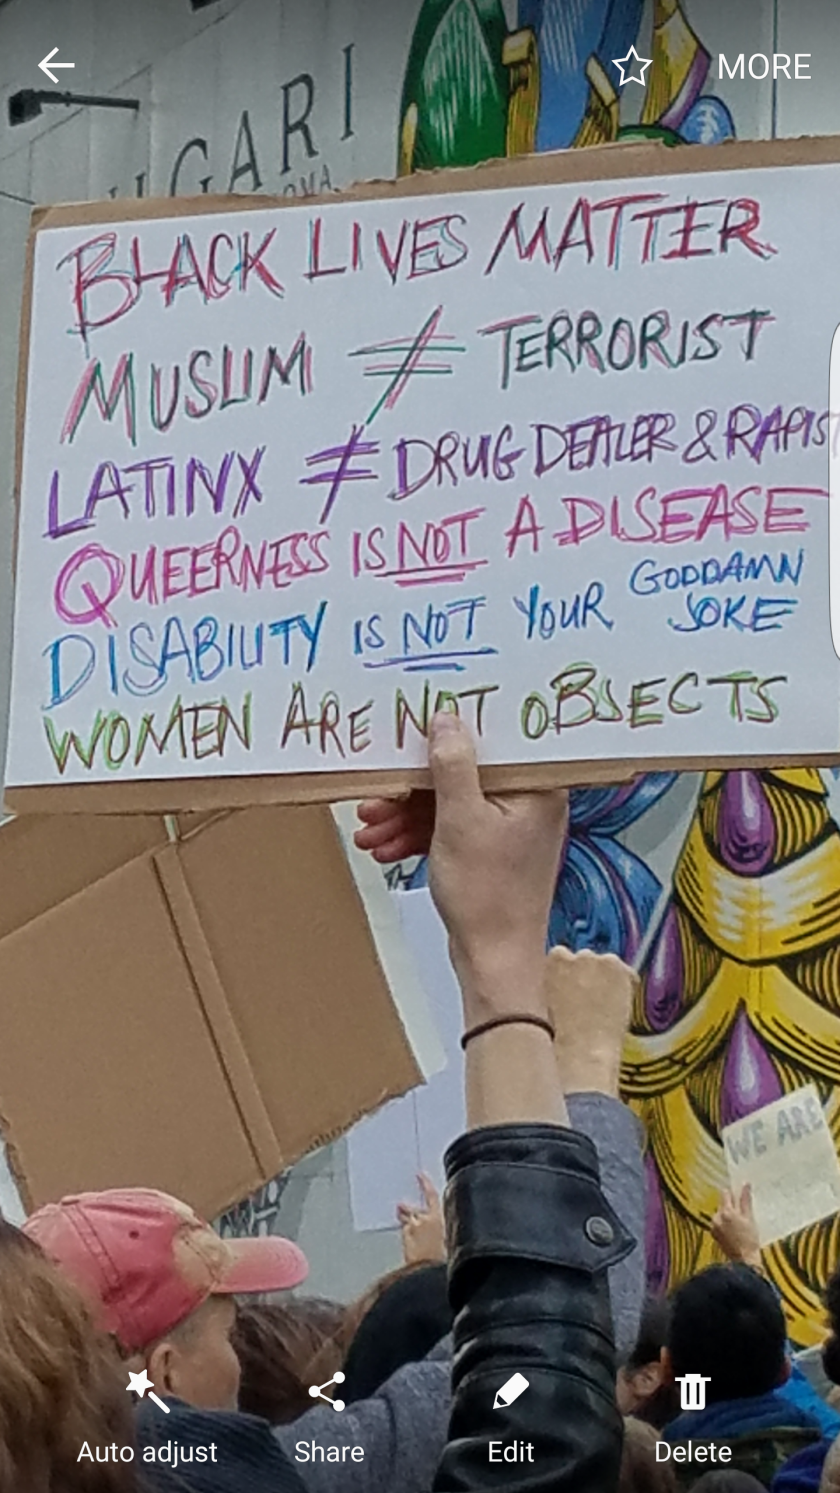 MORE
GARI
OMA
BLACK LIVES MATTER
MUSLIM ≠ TERRORIST
LATINX ≠ DRUG DEALER & RAPIST
QUEERNESS IS NOT A DISEASE
DISABILITY IS NOT YOUR GODDAMN
JOKE
WOMEN ARE NOT OBJECTS
WE ARE
Auto adjust Share Edit Delete